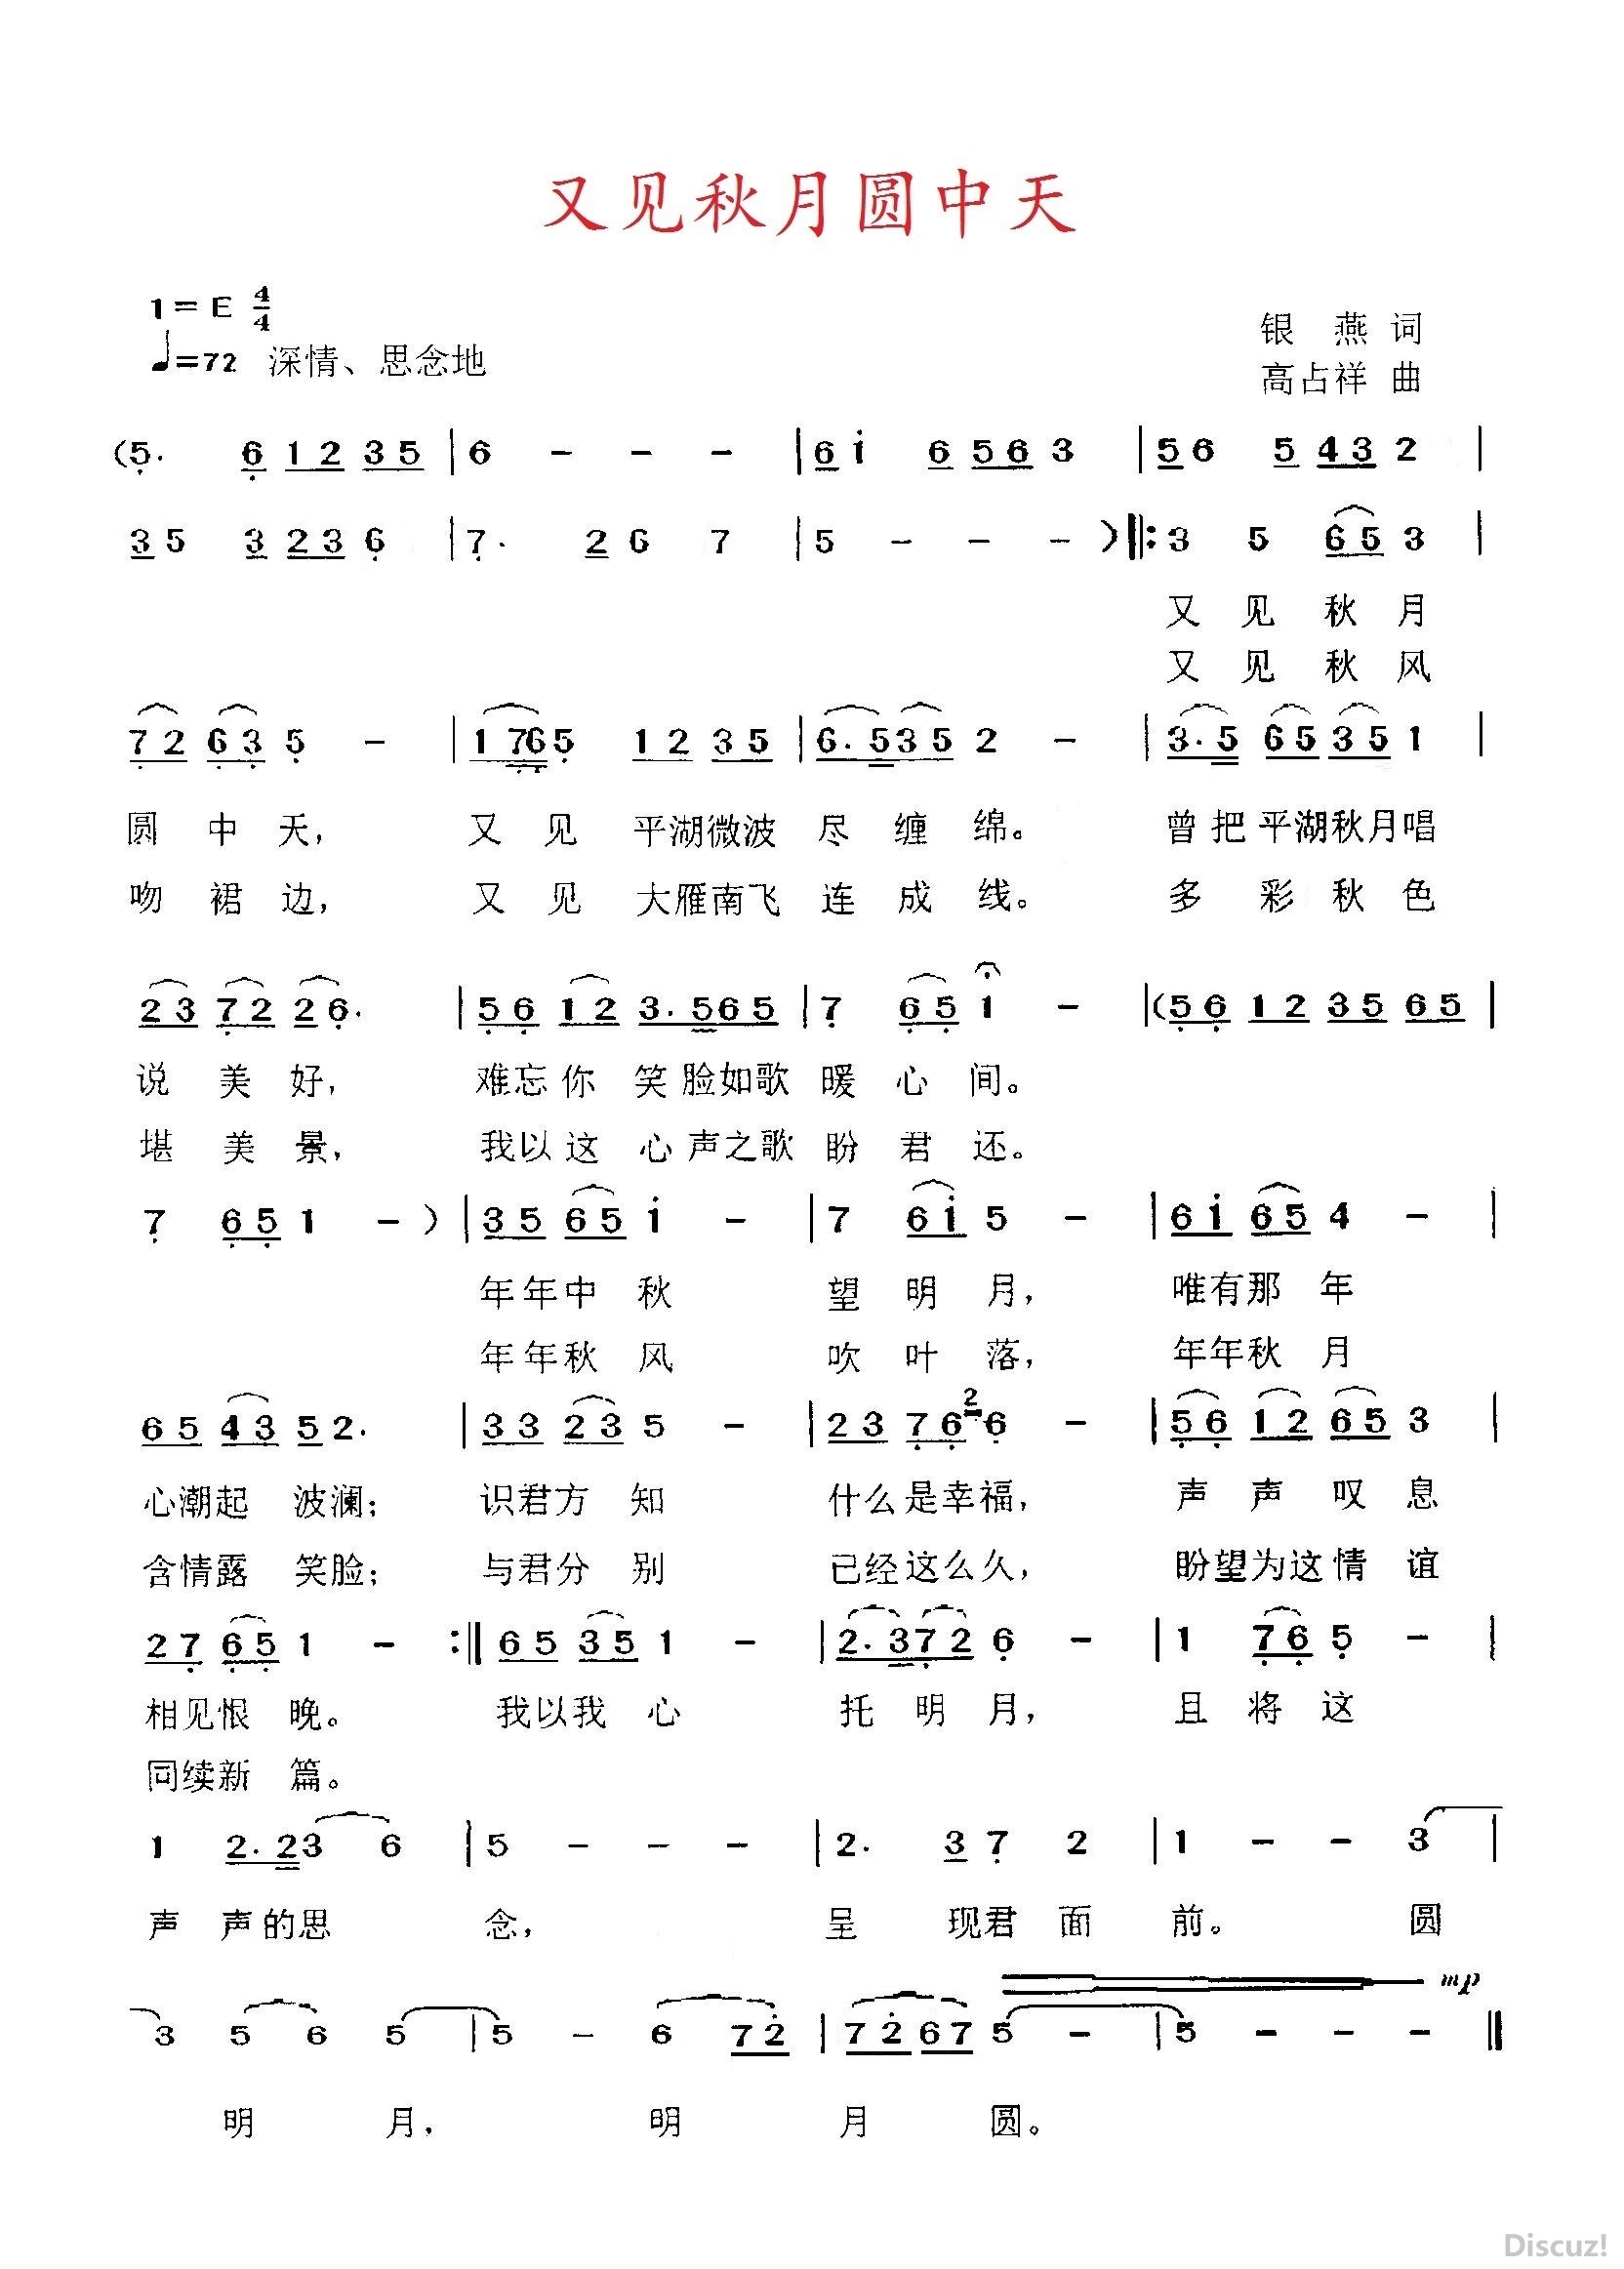 又见秋月圆中天
1=E 4/4
♩=72 深情、思念地
银 燕 词
高占祥 曲
(5̣. 6̣ 1 2 3 5 | 6 - - - | 6 i 6 5 6 3 | 5 6 5 4 3 2 |
3 5 3 2 3 6̣ | 7̣. 2 6 7 | 5 - - - ) ‖: 3 5 6 5 3 |
又 见 秋 月
又 见 秋 风
7̣ 2 6̣ 3̣ 5̣ - | 1 7̣ 6̣ 5̣ 1 2 3 5 | 6. 5 3 5 2 - | 3. 5 6 5 3 5 1 |
圆 中 天, 又 见 平湖微波 尽 缠 绵。 曾 把 平湖秋月唱
吻 裙 边, 又 见 大雁南飞 连 成 线。 多 彩 秋 色
2 3 7̣ 2 2 6̣. | 5̣ 6̣ 1 2 3. 5 6 5 | 7̣ 6̣ 5̣ 1 - | (5̣ 6̣ 1 2 3 5 6 5 |
说 美 好, 难忘你 笑 脸如歌 暖 心 间。
堪 美 景, 我以这 心 声之歌 盼 君 还。
7̣ 6̣ 5̣ 1 - ) | 3 5 6 5 i - | 7 6 i 5 - | 6 i 6 5 4 - |
年年中 秋 望 明 月, 唯有那 年
年年秋 风 吹 叶 落, 年年秋 月
6 5 4 3 5 2. | 3 3 2 3 5 - | 2 3 7̣ 6̣ 2 6̣ - | 5̣ 6̣ 1 2 6 5 3 |
心潮起 波澜; 识君方 知 什么是幸福, 声 声 叹 息
含情露 笑脸; 与君分 别 已经这么久, 盼望为这 情 谊
2 7̣ 6̣ 5̣ 1 - :‖ 6 5 3 5 1 - | 2. 3 7̣ 2 6̣ - | 1 7̣ 6̣ 5̣ - |
相见恨 晚。 我以我 心 托 明 月, 且 将 这
同续新 篇。
1 2. 2 3 6 | 5 - - - | 2. 3 7̣ 2 | 1 - - 3 |
声 声的思 念, 呈 现君 面 前。 圆
mp
3 5 6 5 | 5 - 6 7 2̇ | 7 2̇ 6 7 5 - | 5 - - - ‖
明 月, 明 月 圆。
Discuz!